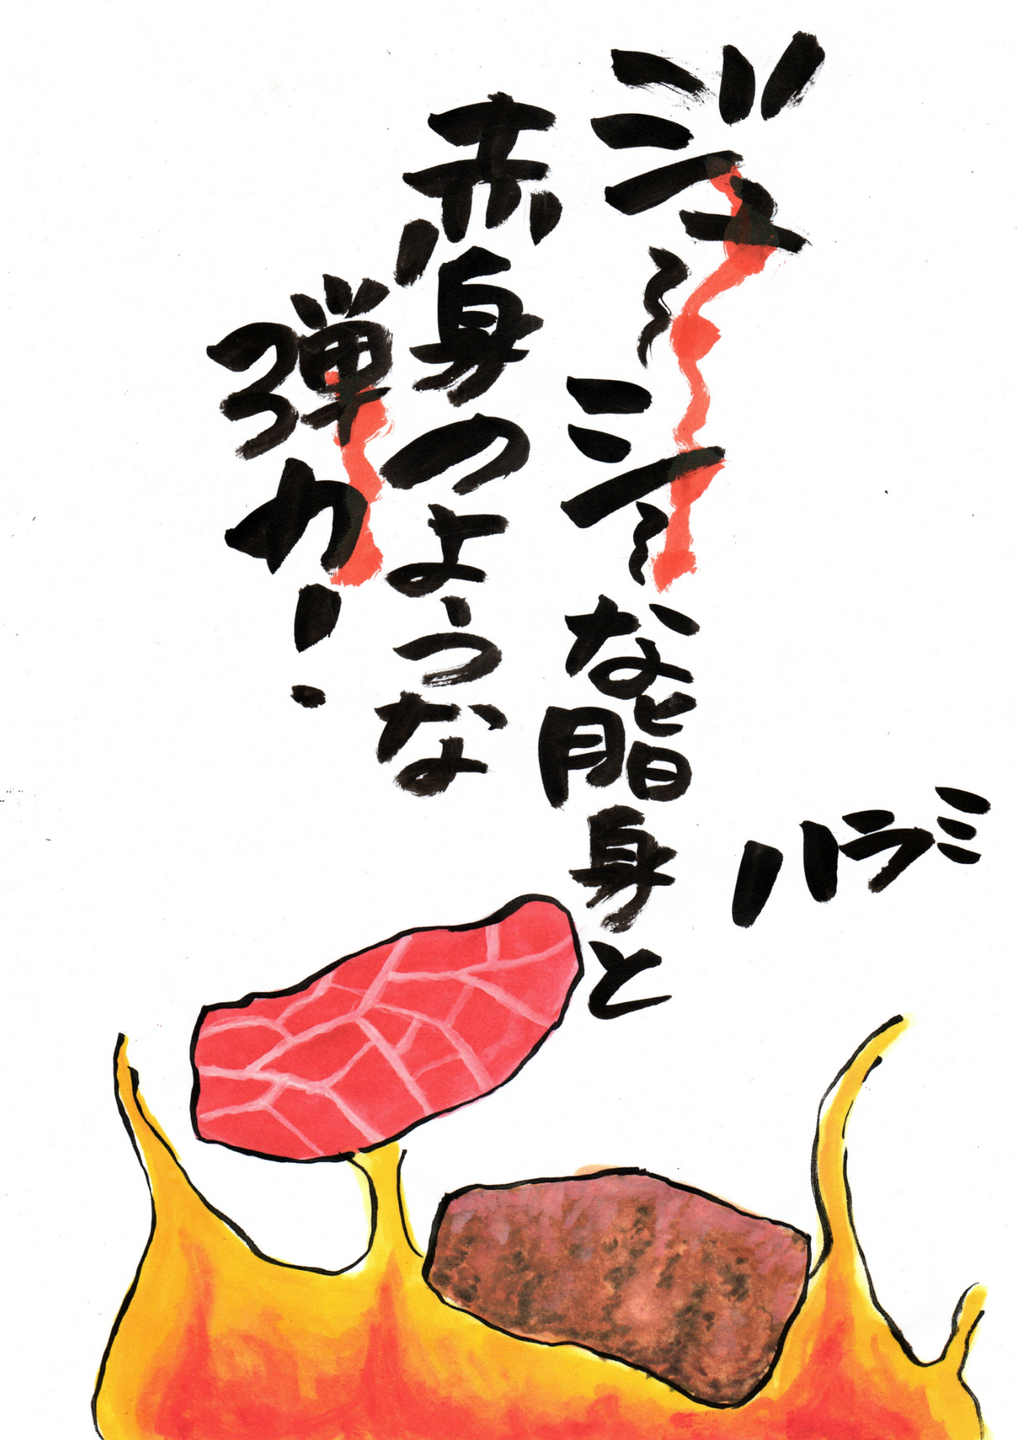 ハラミ
ジューシーな脂身と
赤身のような
弾力！